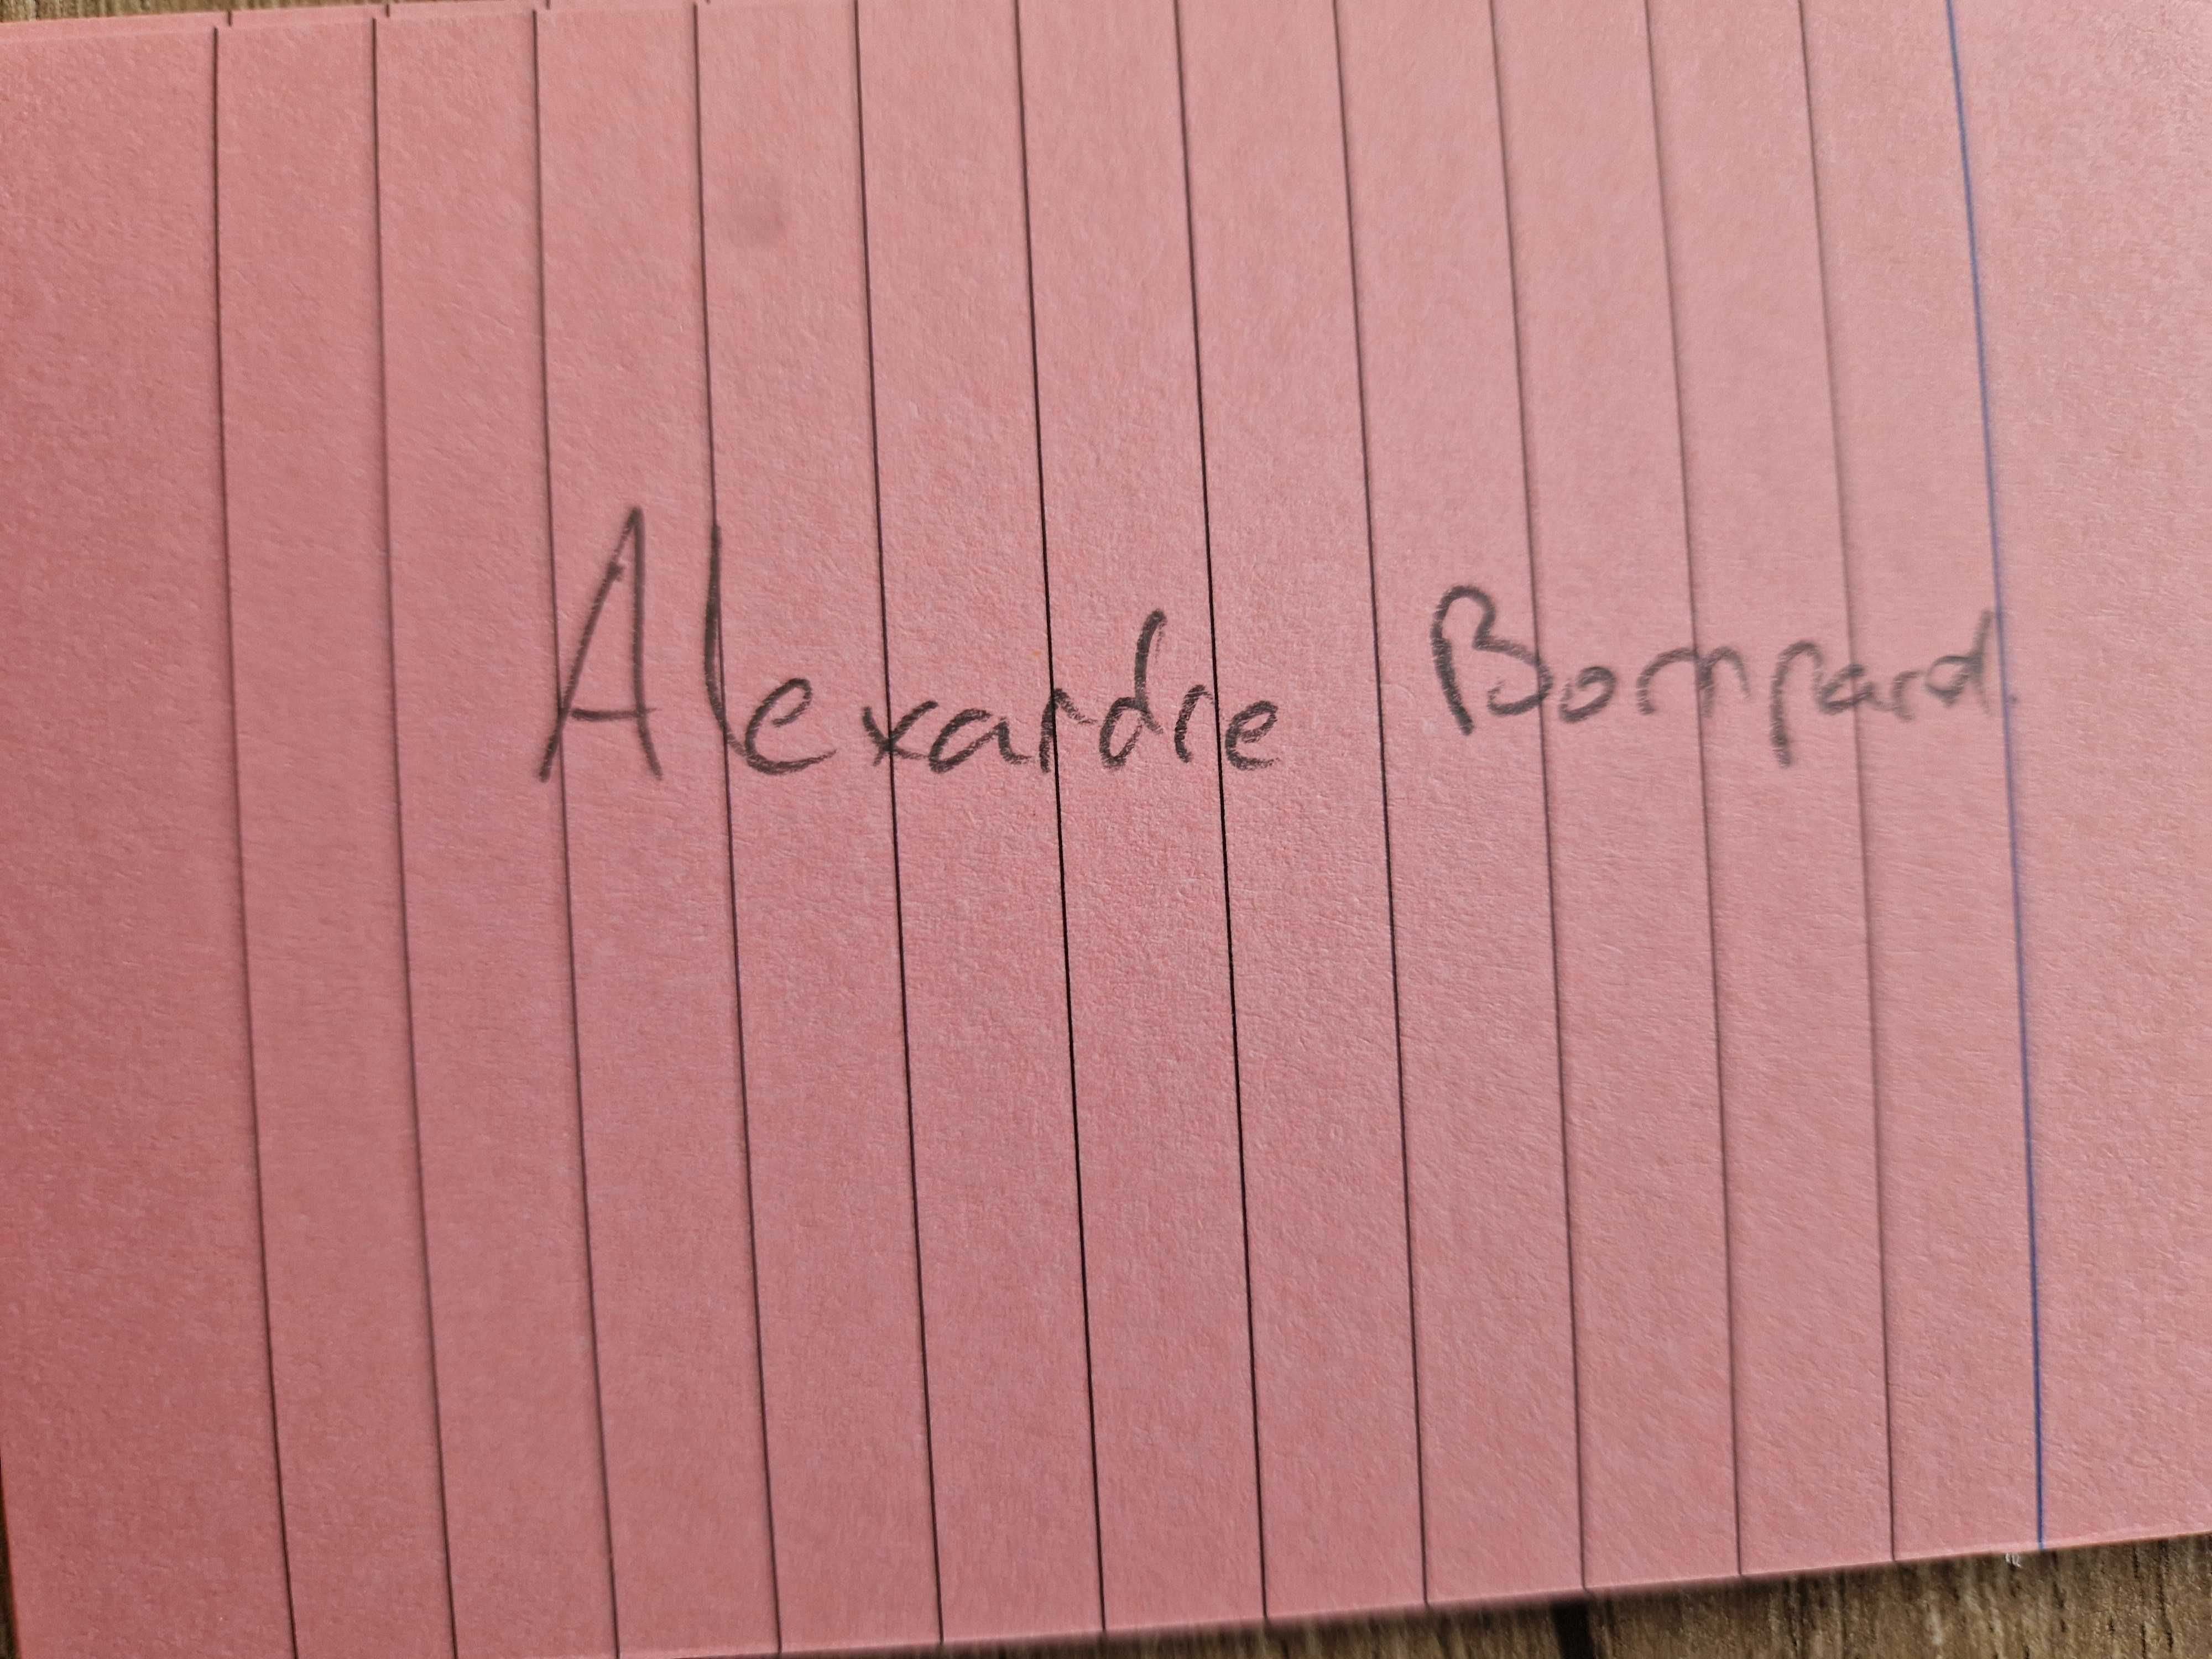 Alexandre Bompard